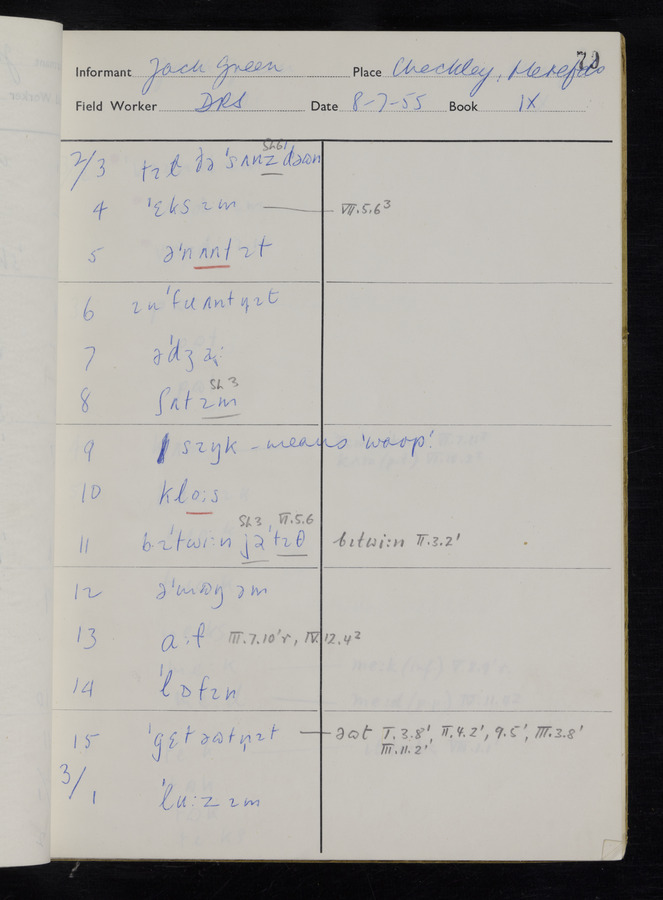 Informant Jack Green Place Checkley, Herefds 70
Field Worker DRS Date 8-7-55 Book IX
Sh6'
2/3 tɪt ðə 'sʌnz dəʊn
4 'ɛks ɪm — VII.5.6³
5 ə'nʌnt ɪt
6 ɪn 'fɹʌnt ɪt
7 ə'dʒ
Sh 3
8 ʃʌt ɪm
9 sɪɪk - means 'weep'.
10 klo:s
Sh.3 VI.5.6
11 bɪ'twi:n jə 'tɪθ bɪtwi:n II.3.2'
12 ə'mɒŋ əm
13 a:f III.7.10'r, IV.12.4²
14 'lɒfɪn
15 'gɛt əʊt ɪt — əʊt I.3.8', II.4.2', 9.5', III.3.8'
III.11.2'
3/1 'lu:z ɪm